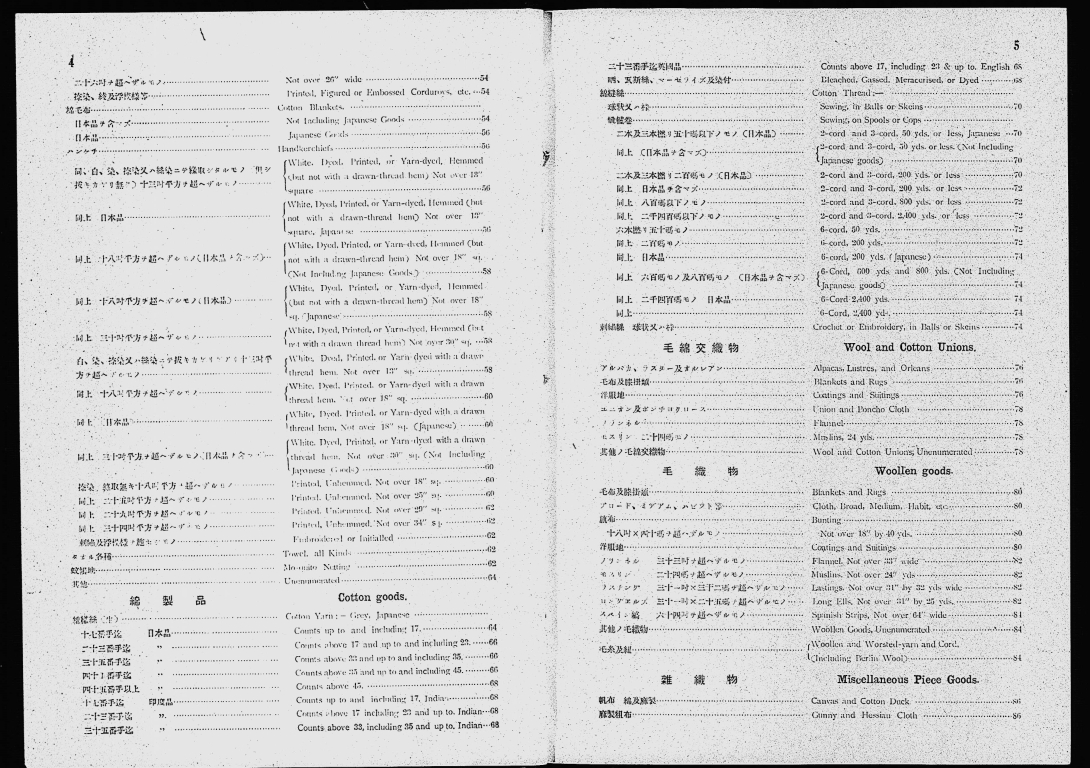 4
二十六吋ヲ超ヘザルモノ Not over 26" wide 54
捺染、綾及浮模樣等 Printed, Figured or Embossed Corduroys, etc. 54
綿毛布 Cotton Blankets.
日本品ヲ含マズ Not Including Japanese Goods 54
日本品 Japanese Goods 56
ハンケチ Handkerchiefs 56
White, Dyed, Printed, or Yarn-dyed, Hemmed
(but not with a drawn-thread hem) Not over 13"
square 56
同上 日本品
White, Dyed, Printed, or Yarn-dyed, Hemmed (but
not with a drawn-thread hem) Not over 13"
square, Japanese 56
同上 十八吋平方ヲ超ヘザルモノ(日本品ヲ含マズ)
White, Dyed, Printed, or Yarn-dyed, Hemmed (but
not with a drawn-thread hem) Not over 18" sq.
(Not Including Japanese Goods) 58
同上 十八吋平方ヲ超ヘザルモノ(日本品)
White, Dyed, Printed, or Yarn-dyed, Hemmed
(but not with a drawn-thread hem) Not over 18"
sq. Japanese 58
同上 三十吋平方ヲ超ヘザルモノ
White, Dyed, Printed, or Yarn-dyed, Hemmed (but
not with a drawn-thread hem) Not over 30" sq. 58
White, Dyed, Printed, or Yarn-dyed with a drawn
thread hem. Not over 13" sq. 58
同上 十八吋平方ヲ超ヘザルモノ
White, Dyed, Printed, or Yarn-dyed with a drawn
thread hem. Not over 18" sq. 60
同上 日本品
White, Dyed, Printed, or Yarn-dyed with a drawn
thread hem, Not over 18" sq. (Japanese) 60
同上 三十吋平方ヲ超ヘザルモノ(日本品ヲ含マズ)
White, Dyed, Printed, or Yarn-dyed with a drawn
thread hem. Not over 30" sq. (Not Including
Japanese Goods) 60
Printed, Unhemmed. Not over 18" sq. 60
同上 二十五吋平方ヲ超ヘザルモノ Printed, Unhemmed. Not over 25" sq. 60
同上 二十九吋平方ヲ超ヘザルモノ Printed, Unhemmed. Not over 29" sq. 62
同上 三十四吋平方ヲ超ヘザルモノ Printed, Unhemmed. Not over 34" sq. 62
Embroidered or Initialled 62
タオル各種 Towel, all Kinds 62
蚊帳地 Mosquito Netting 62
其他 Unenumerated 64
綿製品 Cotton goods.
綿縫絲(生) Cotton Yarn:— Grey, Japanese
十七番手迄 日本品 Counts up to and including 17. 64
二十三番手迄 〃 Counts above 17 and up to including 23. 66
三十五番手迄 〃 Counts above 23 and up to including 35. 66
四十五番手迄 〃 Counts above 35 and up to including 45. 66
四十五番手以上 〃 Counts above 45. 68
十七番手迄 印度品 Counts up to and including 17, Indian 68
二十三番手迄 〃 Counts above 17 including 23 and up to. Indian 68
三十五番手迄 〃 Counts above 33, including 35 and up to. Indian 68
5
二十三番手迄英國品 Counts above 17, including 23 & up to. English 68
晒、瓦斯絲、マーセライズ及染付 Bleached, Gassed, Mercerised, or Dyed 68
綿縫絲 Cotton Thread:—
球狀又ハ桛 Sewing, in Balls or Skeins 70
Sewing, on Spools or Cops
二本及三本撚リ五十碼以下ノモノ(日本品) 2-cord and 3-cord, 50 yds. or less, Japanese 70
同上 (日本品ヲ含マズ)
2-cord and 3-cord, 50 yds. or less. (Not Including
Japanese goods) 70
二本及三本撚リ二百碼モノ(日本品) 2-cord and 3-cord, 200 yds. or less 70
同上 日本品ヲ含マズ 2-cord and 3-cord, 200 yds. or less 72
同上 八百碼以下ノモノ 2-cord and 3-cord, 800 yds. or less 72
同上 二千四百碼以下ノモノ 2-cord and 3-cord, 2,400 yds. or less 72
六本撚リ五十碼モノ 6-cord, 50 yds. 72
同上 二百碼モノ 6-cord, 200 yds. 72
同上 日本品 6-cord, 200 yds. (Japanese) 74
同上 六百碼モノ及八百碼モノ (日本品ヲ含マズ)
6-Cord, 600 yds and 800 yds. (Not Including
Japanese goods) 74
同上 二千四百碼モノ 日本品 6-Cord 2,400 yds. 74
同上 6-Cord, 2,400 yds. 74
刺繡絲 球狀又ハ桛 Crochet or Embroidery, in Balls or Skeins 74
毛綿交織物 Wool and Cotton Unions.
アルパカ、ラスター及オルレアン Alpacas, Lustres, and Orleans 76
毛布及膝掛類 Blankets and Rugs 76
洋服地 Coatings and Suitings 76
ユニオン及ポンチヨクロース Union and Poncho Cloth 78
フランネル Flannel 78
モスリン 二十四碼モノ Muslins, 24 yds. 78
其他ノ毛綿交織物 Wool and Cotton Unions, Unenumerated 78
毛織物 Woollen goods.
毛布及膝掛類 Blankets and Rugs 80
ブロード、ミデアム、ハビツト等 Cloth, Broad, Medium, Habit, etc. 80
旗布 Bunting
十八吋×四十碼ヲ超ヘザルモノ Not over 18" by 40 yds. 80
洋服地 Coatings and Suitings 80
フランネル 三十三吋ヲ超ヘザルモノ Flannel, Not over 33" wide 82
モスリン 二十四碼ヲ超ヘザルモノ Muslins. Not over 24" yds 82
ラスチング 三十一吋×三十二碼ヲ超ヘザルモノ Lastings. Not over 31" by 32 yds wide 82
ロングエルズ 三十一吋×二十五碼ヲ超ヘザルモノ Long Ells, Not over 31" by 25 yds. 82
スペイン縞 六十四吋ヲ超ヘザルモノ Spanish Strips, Not over 64" wide 84
其他ノ毛織物 Woollen Goods, Unenumerated 84
毛糸及紐
Woollen and Worsted-yarn and Cord.
(Including Berlin Wool) 84
雜織物 Miscellaneous Piece Goods.
帆布 綿及麻製 Canvas and Cotton Duck 86
麻製粗布 Gunny and Hessian Cloth 86